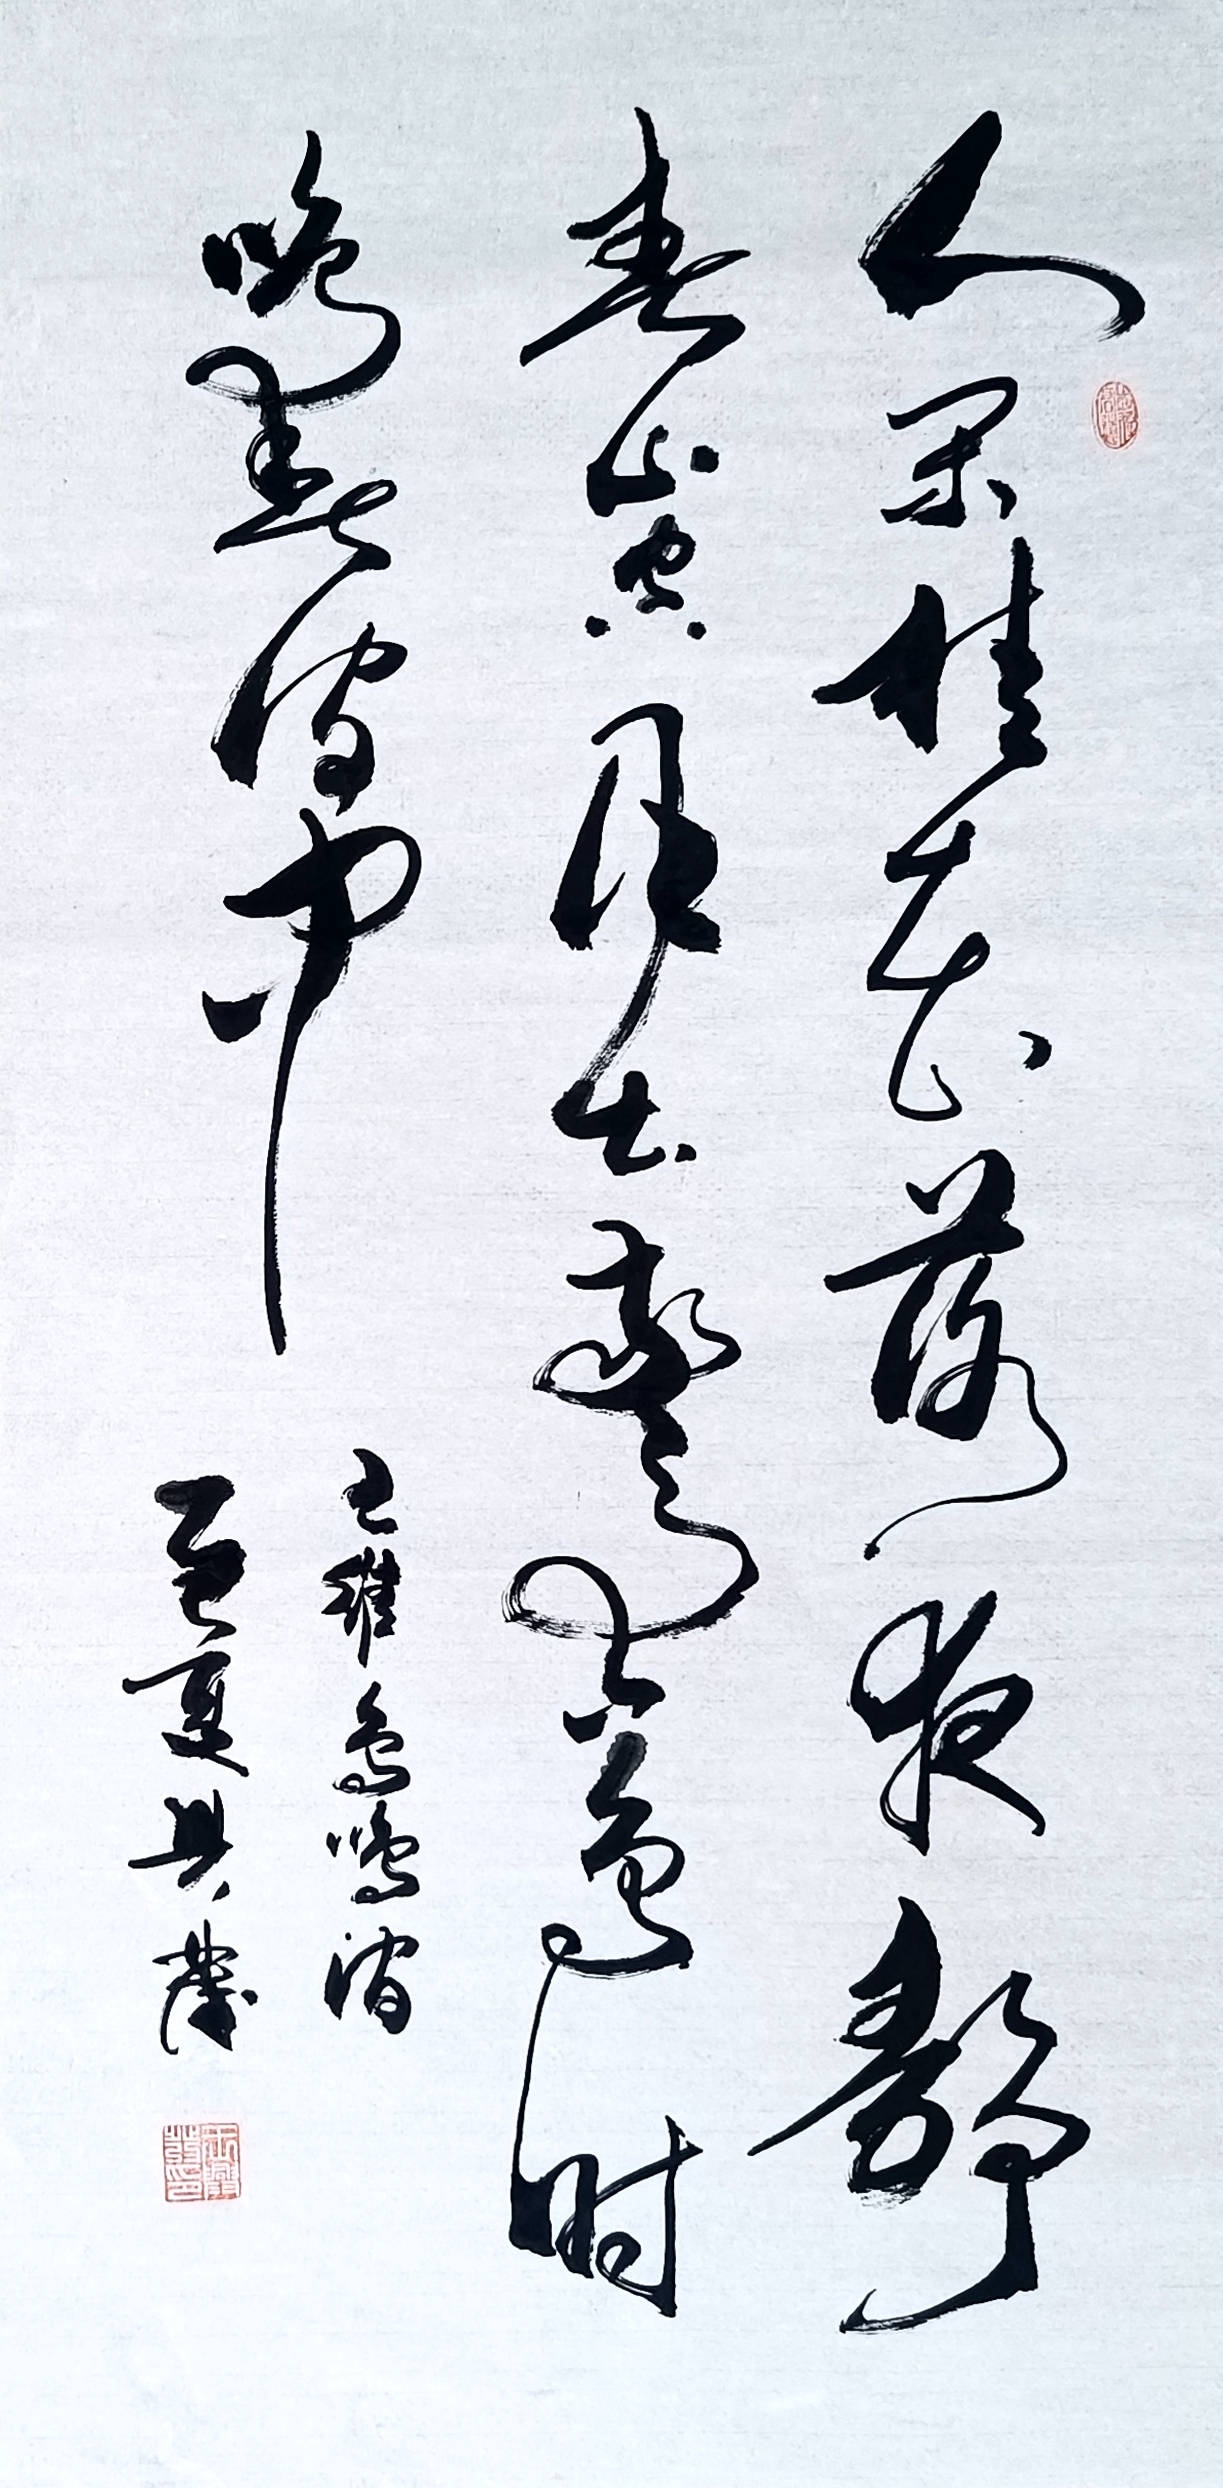 人闲桂花落夜静
春山空月出驚山鸟时
鸣春涧中
王维鸟鸣涧
乙巳夏兴